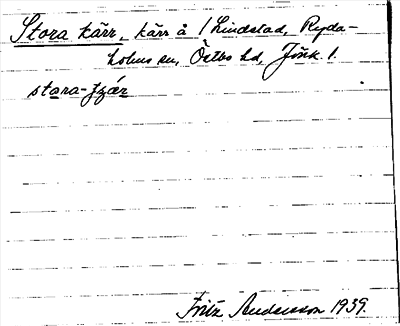 Stora kärr, kärr å 1 Lindstad, Ryda-
holms sn, Östbo hd, Jönk. l.
stora-
Fritz Andersson 1939.